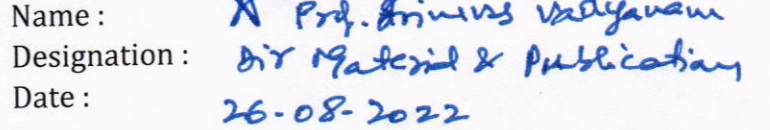 Name : Prof. Srinivas Vadyavam
Designation : Dir Material & Publications
Date : 26-08-2022